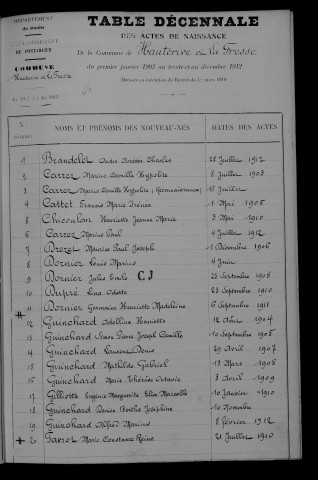 DÉPARTEMENT
du Doubs
ARRONDISSEMENT
DE PONTARLIER
COMMUNE
Hauterive et la Fresse
TABLE DÉCENNALE
DES ACTES DE NAISSANCE
De la Commune de Hauterive et La Fresse
du premier janvier 1903 au trente-et-un décembre 1912
Dressée en exécution du Décret du
NOMS ET PRÉNOMS DES NOUVEAU-NÉS DATES DES ACTES
1 Brandelet Charles 28 Juillet 1912
2 Carrez Marino Camille Hyppolite 8 Juillet 1903
3 Carrez Marino Camille Hyppolite Juillet
4 Cattet François Marie Irénée 1 Mai 1905
5 Chicoulon Henriette Jeanne Marie 3 Mai 1910
6 Carrez Marius Paul 4 Juillet 1912
7 Drezet Maurice Paul Joseph 1 Décembre 1906
8 Dornier Louis Marino 4 Juin
9 Dornier Jules Emile CJ 23 Septembre 1908
10 Dupré Lina Odette 23 Septembre 1910
11 Dornier Germaine Henriette Madeleine 6 Septembre 1911
12 Guinchard Adelina Henriette 12 Août 1904
13 Guinchard Simon Pierre Joseph Camille 10 Septembre 1905
14 Guinchard Laurent Denis 29 Avril 1907
15 Guinchard Mathilde Gabriel 13 Mars 1908
16 Guinchard Marie Thérèse Octavie 3 Avril 1909
17 Gilliotte Eugénie Marguerite Elise Marcelle 10 Janvier 1910
18 Guinchard Denise Berthe Joséphine 10 Novembre
19 Guinchard Alfred Marino 8 Février 1912
20 Javrot Marie Constance Reine 21 Juillet 1910